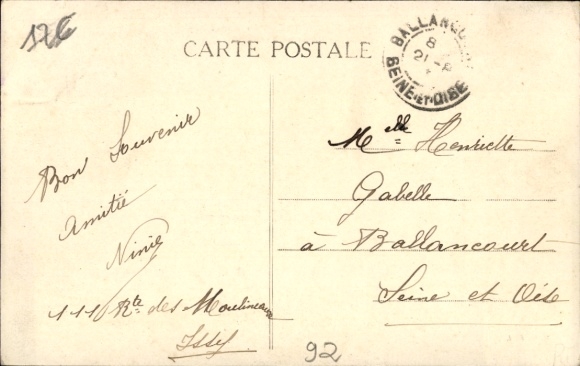 17€
CARTE POSTALE
BALLANCOURT
8
21-8
SEINE-ET-OISE
Bon Souvenir
Amitié
Ninie
111 Rte des Moulineaux
Issy
Melle Henriette
Gabelle
à Ballancourt
Seine et Oise
92